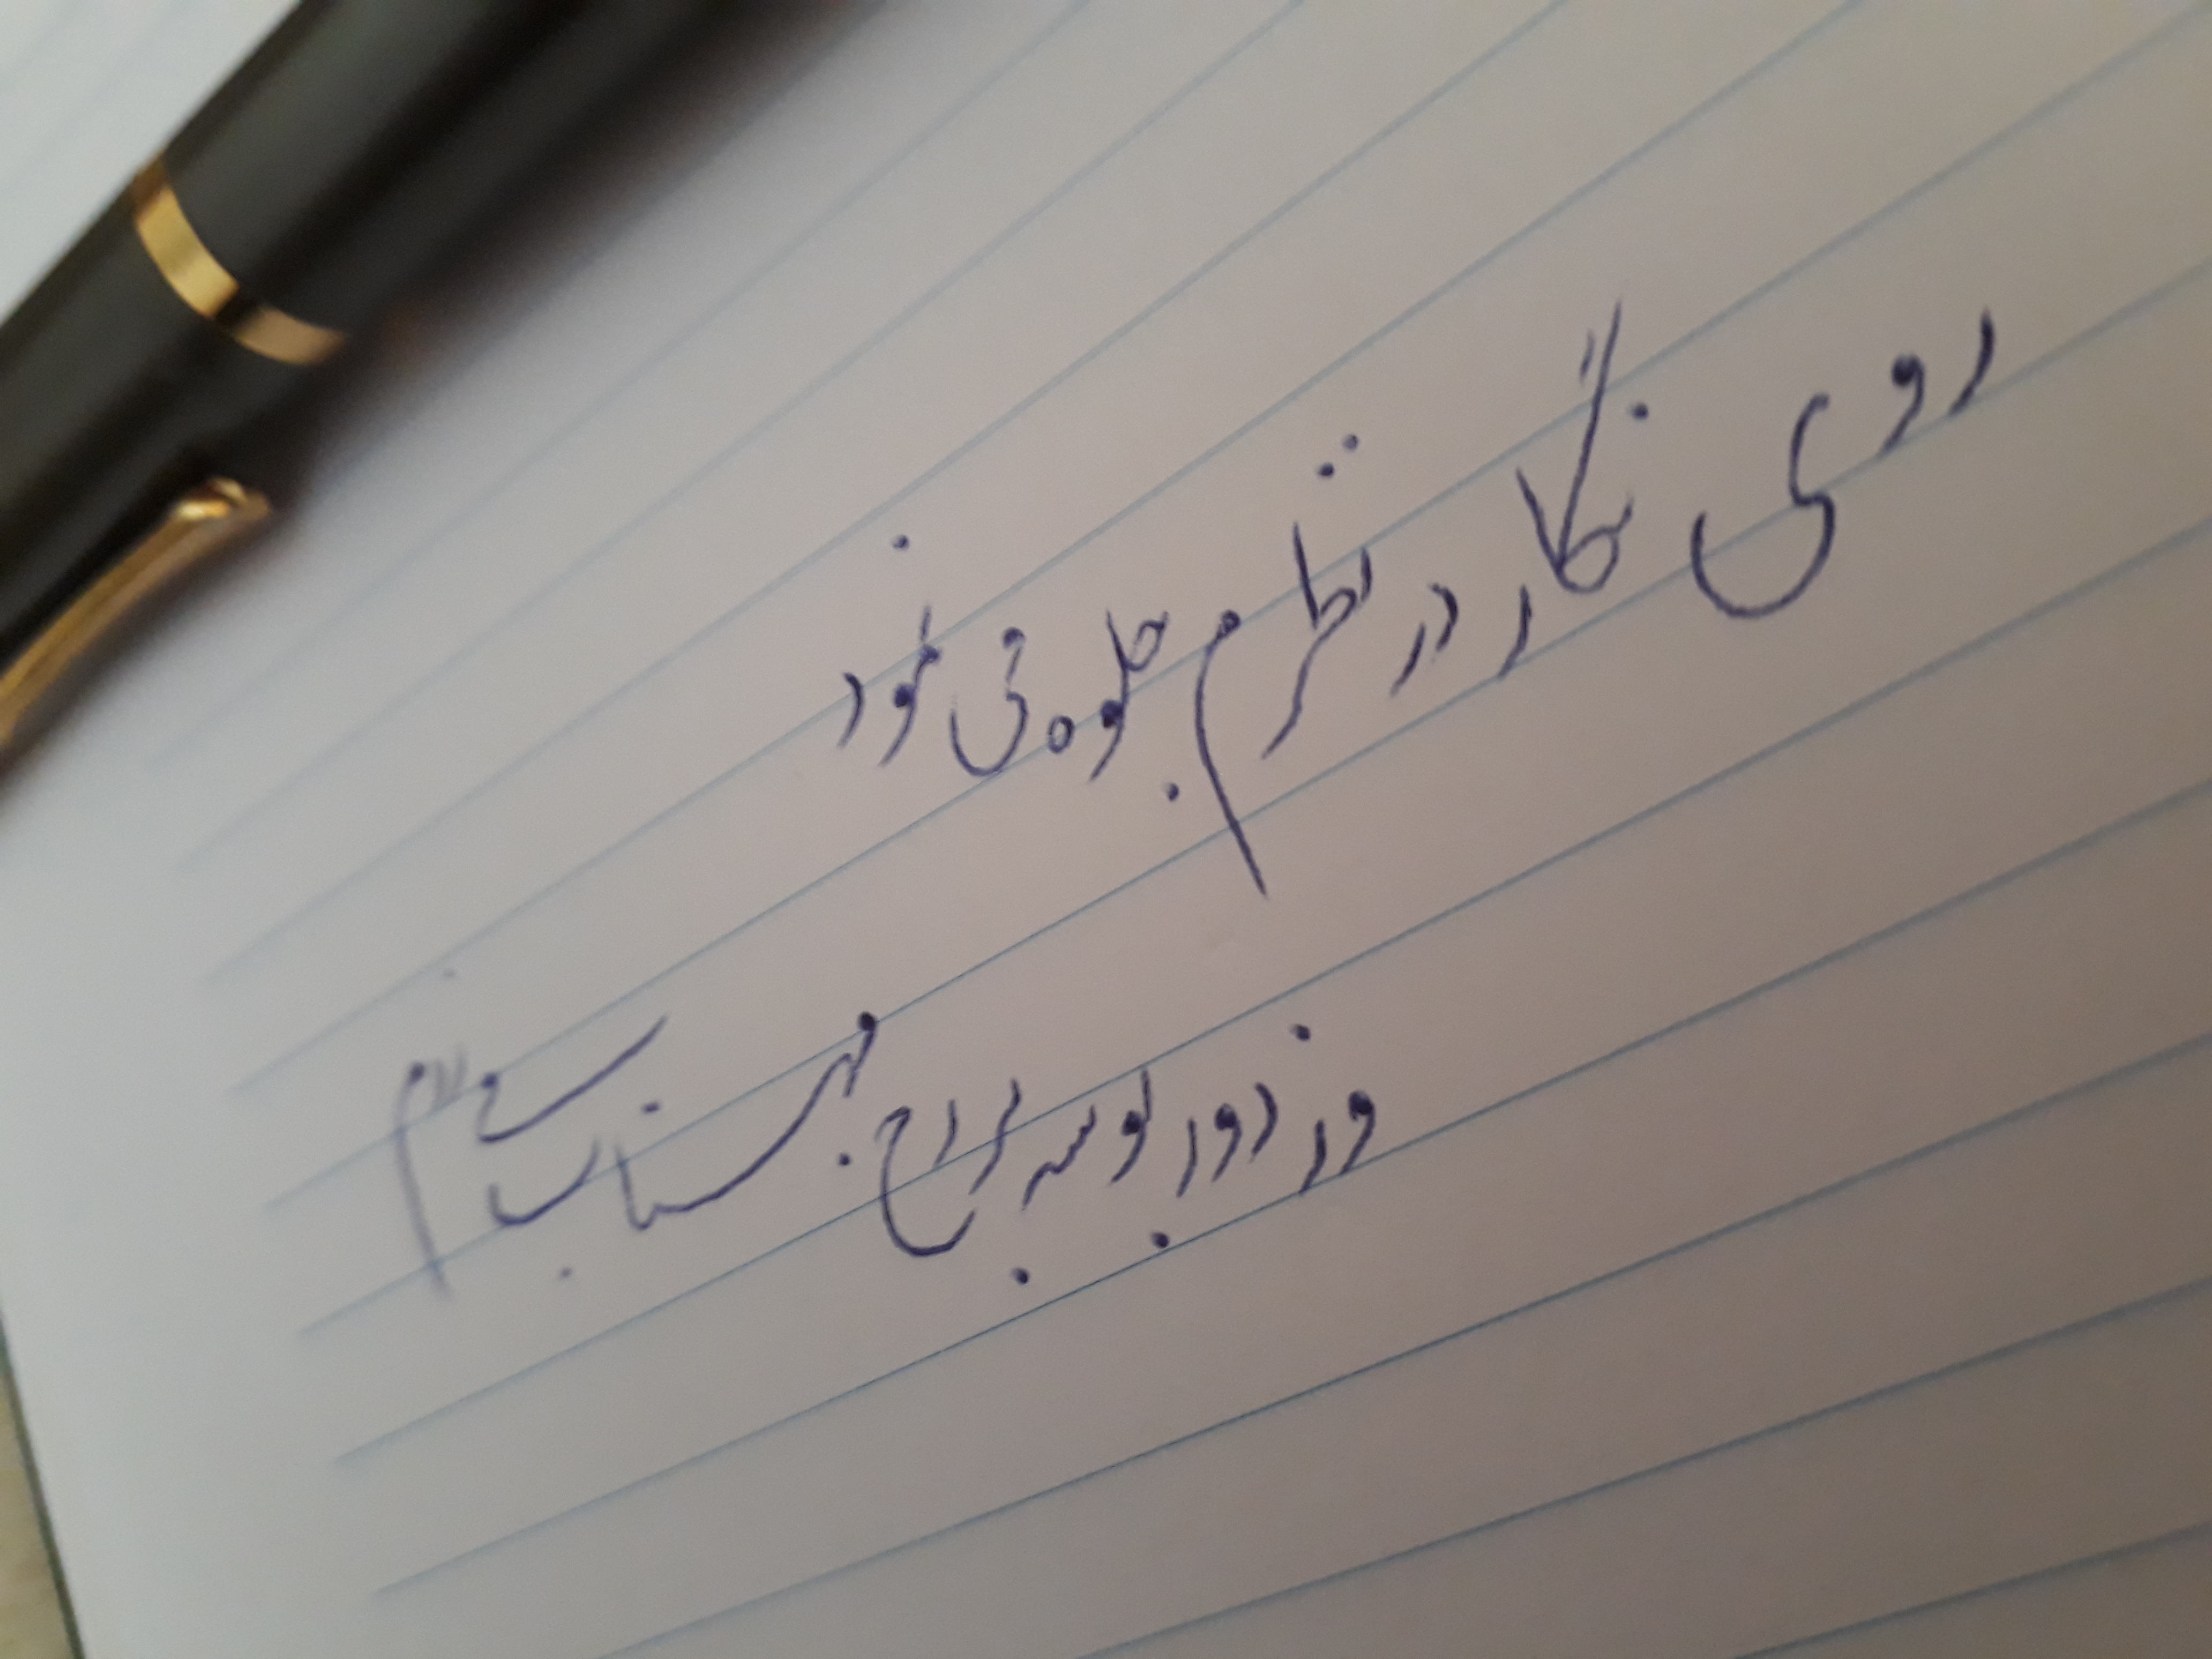 روی نگار در نظرم جلوه می نمود
وز دور بوسه بر رخ مهتاب میزدم